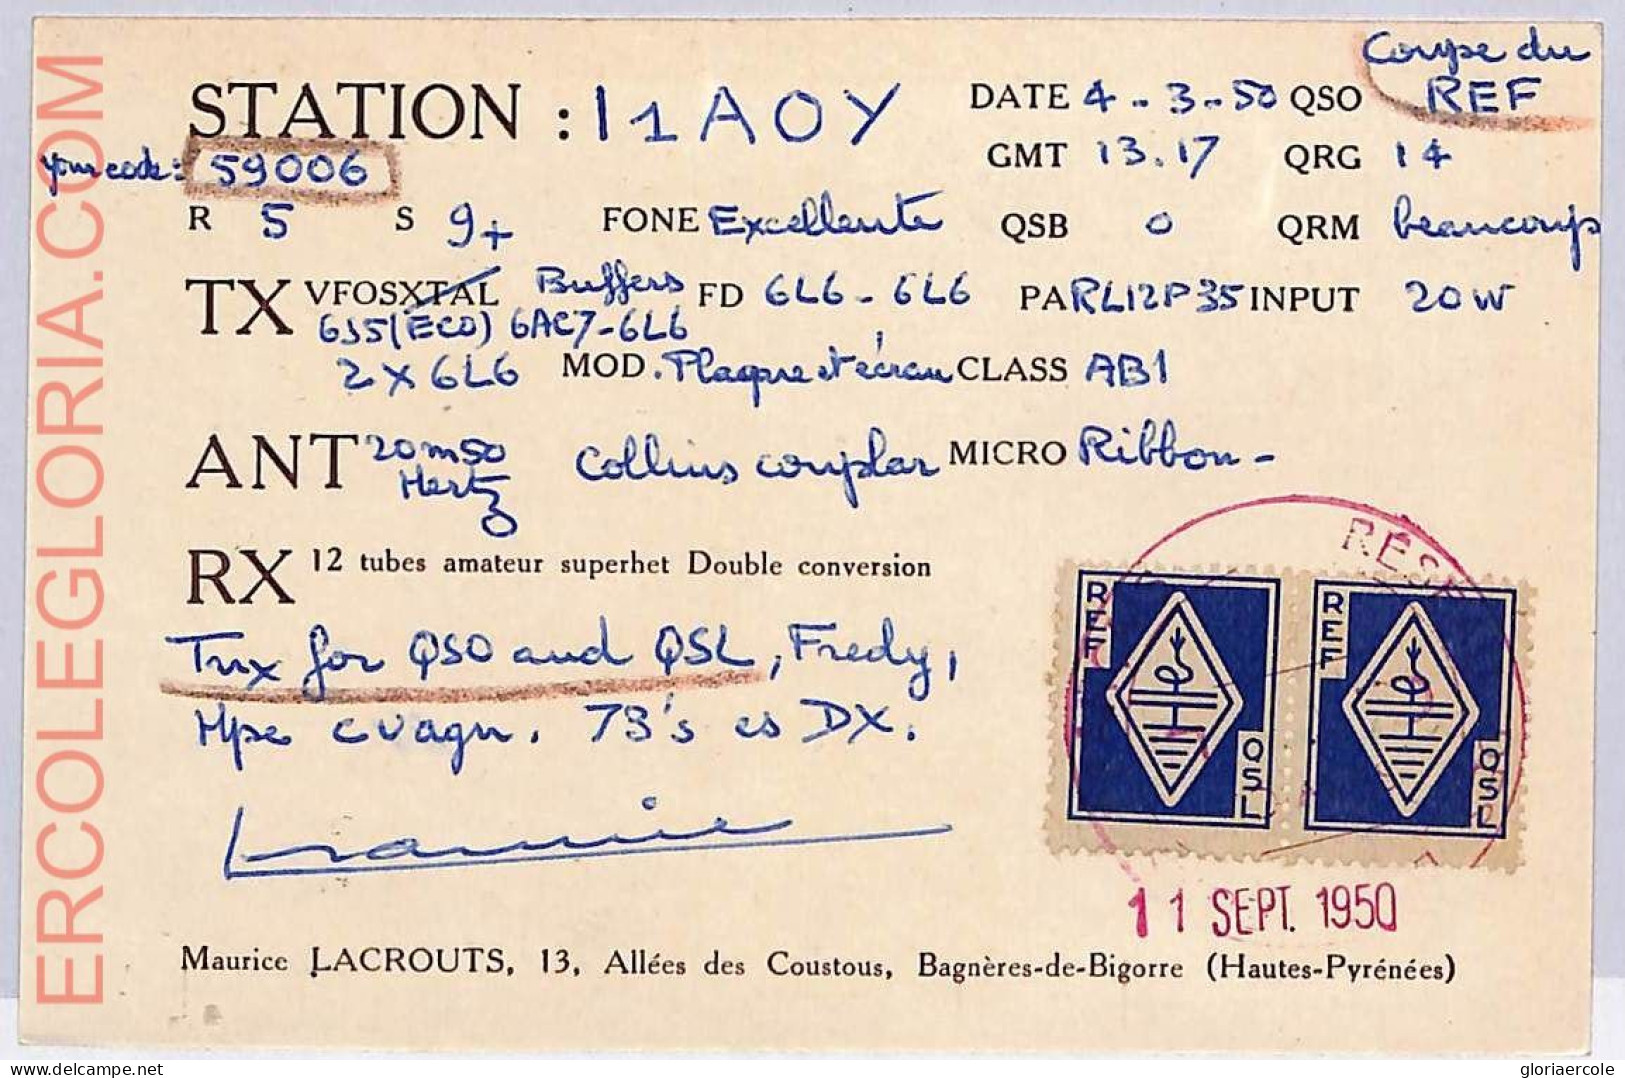 Coupe du
STATION : I1AOY DATE 4-3-50 QSO REF
your code: 59006 GMT 13.17 QRG 14
R 5 S 9+ FONE Excellente QSB 0 QRM beaucoup
TX VFO SXTAL Buffers FD 6L6-6L6 PA RL12P35 INPUT 20W
6J5(ECO) 6AC7-6L6
2X6L6 MOD. Plaque et écran CLASS AB1
ANT 20m50 Hertz Collins coupler MICRO Ribbon-
RX 12 tubes amateur superhet Double conversion
Tnx for QSO and QSL, Fredy,
Hpe cuagn. 73's es DX.
Maurice
REF QSL REF QSL
11 SEPT. 1950
Maurice LACROUTS, 13, Allées des Coustous, Bagnères-de-Bigorre (Hautes-Pyrénées)
ERCOLEGLORIA.COM
delcampe.net
gloriaercole